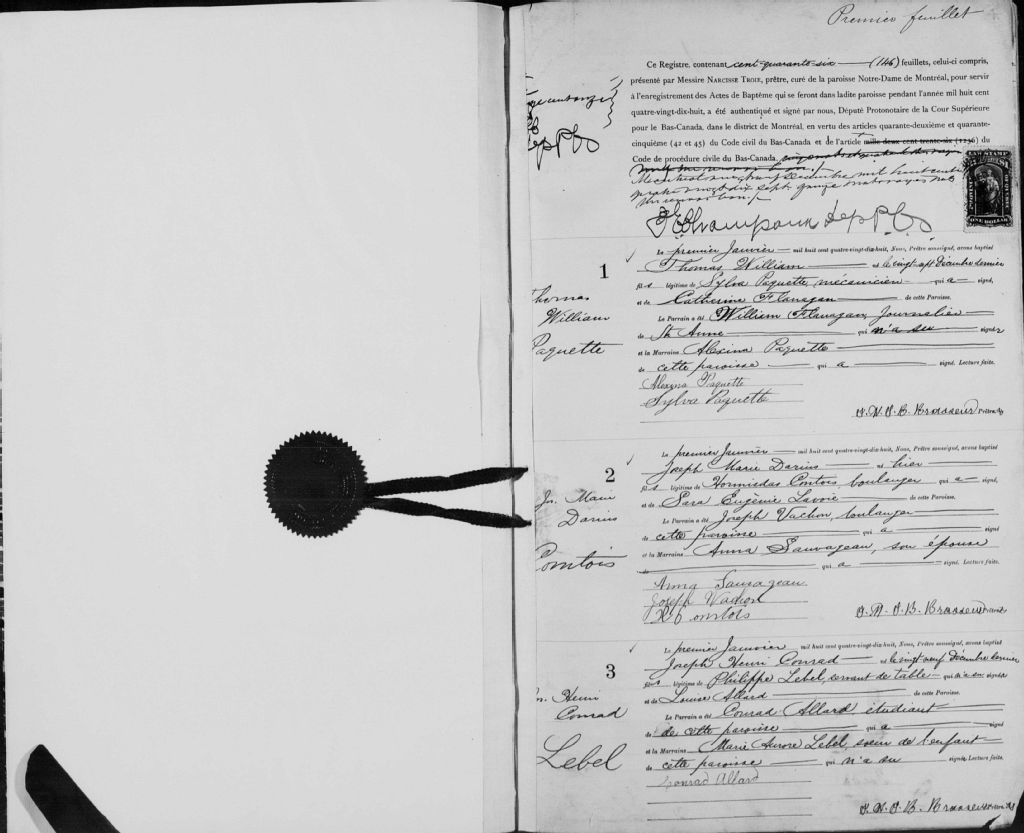 Premier feuillet
Ce Registre, contenant cent quarante-six (146) feuillets, celui-ci compris,
présenté par Messire NARCISSE TROIE, prêtre, curé de la paroisse Notre-Dame de Montréal, pour servir
à l'enregistrement des Actes de Baptême qui se feront dans ladite paroisse pendant l'année mil huit cent
quatre-vingt-dix-huit, a été authentiqué et signé par nous, Député Protonotaire de la Cour Supérieure
pour le Bas-Canada, dans le district de Montréal, en vertu des articles quarante-deuxième et quarante-
cinquième (42 et 45) du Code civil du Bas-Canada et de l'article mille deux cent trente-six (1236) du
Code de procédure civile du Bas-Canada,
Montréal décembre mil huit cent
quatre vingt dix sept. quinze mots rayés nuls
un renvoi bon
dep P.C.S.
LAW STAMP
ONE DOLLAR
1
Thomas
William
Paquette
Le premier Janvier mil huit cent quatre-vingt-dix-huit, Nous, Prêtre soussigné, avons baptisé
Thomas William né le vingt-sept Décembre dernier
fils légitime de Sylva Paquette, mécanicien qui a signé,
et de Catherine Flanagan de cette Paroisse.
Le Parrain a été William Flanagan, Journalier
de St Anne qui n'a su signer
et la Marraine Alexina Paquette
de cette paroisse qui a signé. Lecture faite.
Alexina Paquette
Sylva Paquette
J.N.O.B. Brasseur Prêtre
2
Jos. Marie
Darius
Comtois
Le premier Janvier mil huit cent quatre-vingt-dix-huit, Nous, Prêtre soussigné, avons baptisé
Joseph Marie Darius né hier
fils légitime de Hormisdas Comtois boulanger qui a signé,
et de Sara Eugénie Lavoie de cette Paroisse.
Le Parrain a été Joseph Vachon, boulanger
de cette paroisse qui a signé
et la Marraine Anna Sauvageau, son épouse
de qui a signé. Lecture faite.
Anna Sauvageau
Joseph Vachon
H Comtois
Brasseur
3
Jos. Henri
Conrad
Lebel
Le premier Janvier mil huit cent quatre-vingt-dix-huit, Nous, Prêtre soussigné, avons baptisé
Joseph Henri Conrad né le vingt neuf Décembre dernier
fils légitime de Philippe Lebel, servant de table qui n'a su signer
et de Louise Allard de cette Paroisse.
Le Parrain a été Conrad Allard étudiant
de de cette paroisse qui a signé
et la Marraine Marie Aurore Lebel, soeur de l'enfant
de cette paroisse qui n'a su signer. Lecture faite.
Conrad Allard
Brasseur Prêtre